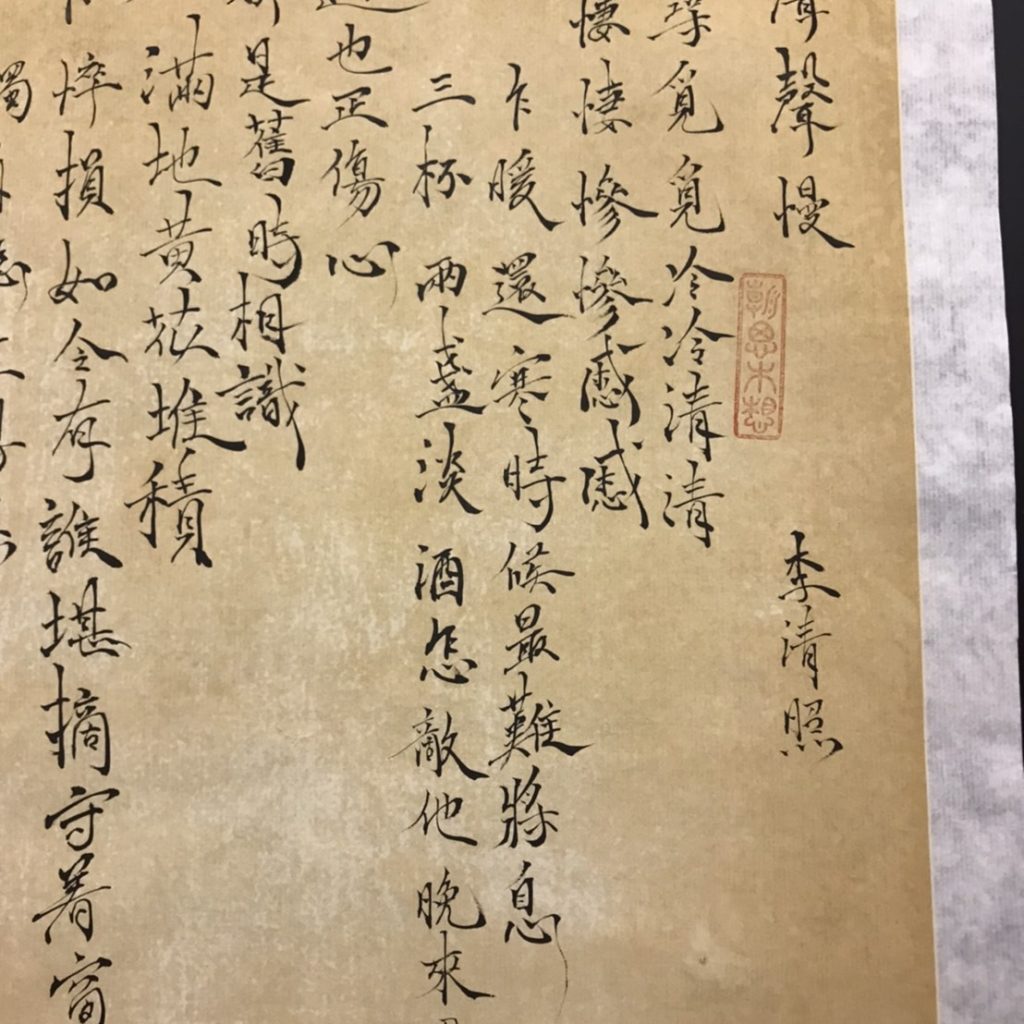 聲聲慢 李清照
尋覓覓冷冷清清
悽悽慘慘慼慼
乍暖還寒時候最難將息
三杯兩盞淡酒怎敵他晚來
也正傷心
是舊時相識
滿地黃花堆積
悴損如今有誰堪摘守著窗